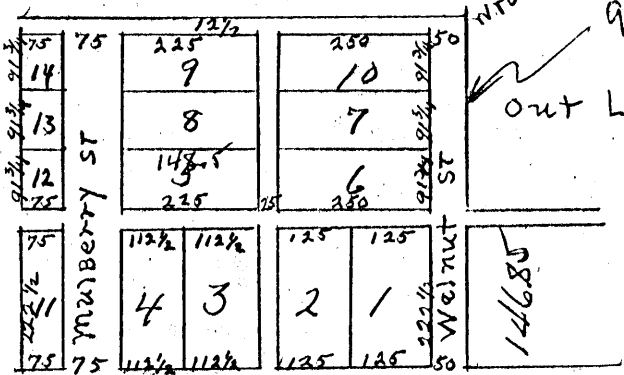 12½
75 75 225 250 50
91¾ 14 9 10 91¾
91¾ 13 8 7 91¾ Out L
91¾ 12 5 6 91¾
75 225 75 250
Mulberry ST
ST
75 112½ 112½ 125 125
222½ 11 4 3 2 1 222½ Walnut 14685
75 75 112½ 112½ 125 125 50